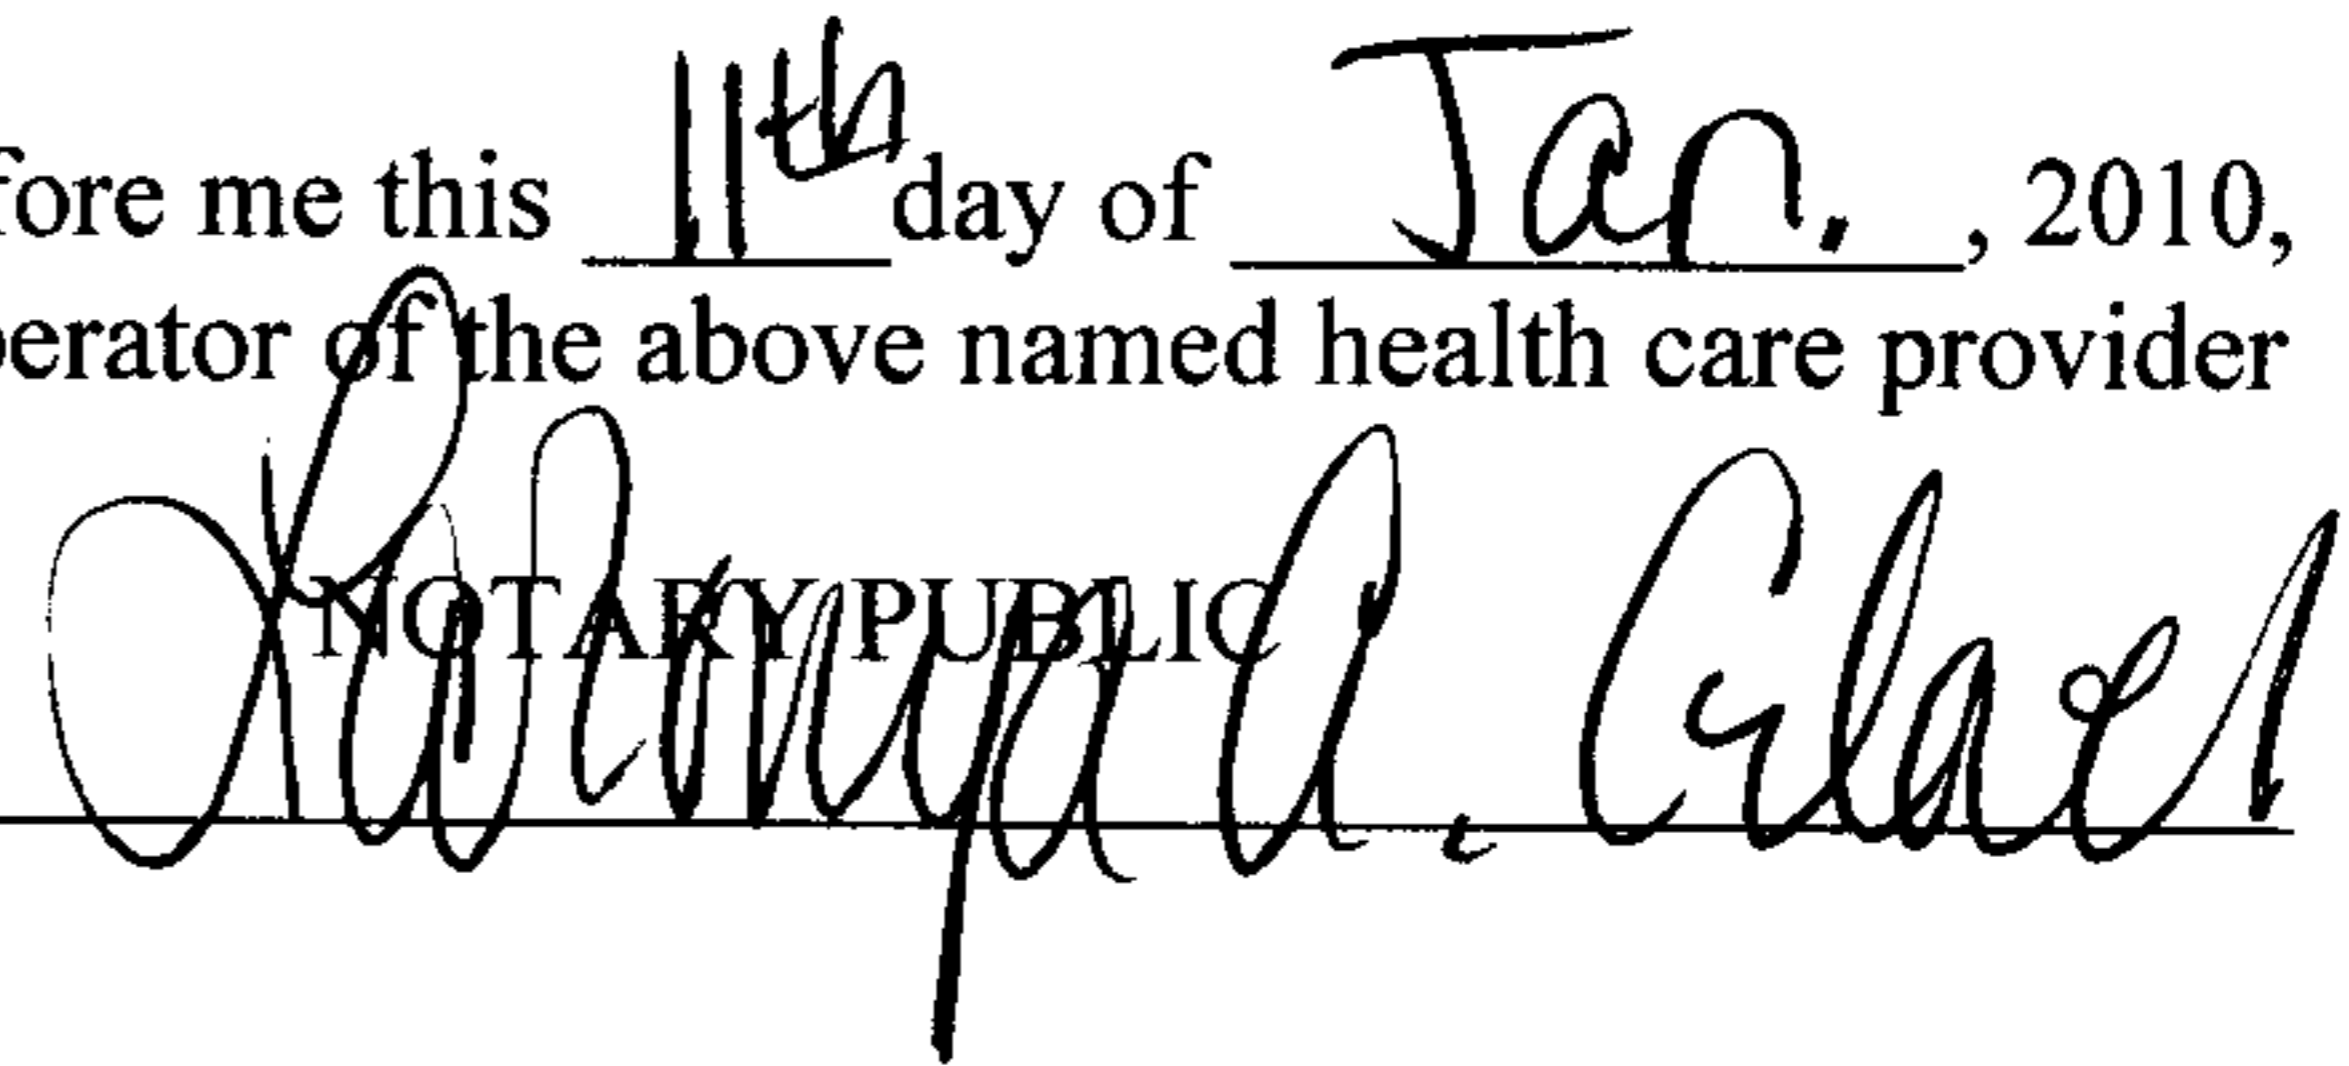 fore me this 11th day of Jan., 2010,
perator of the above named health care provider
NOTARY PUBLIC
A.